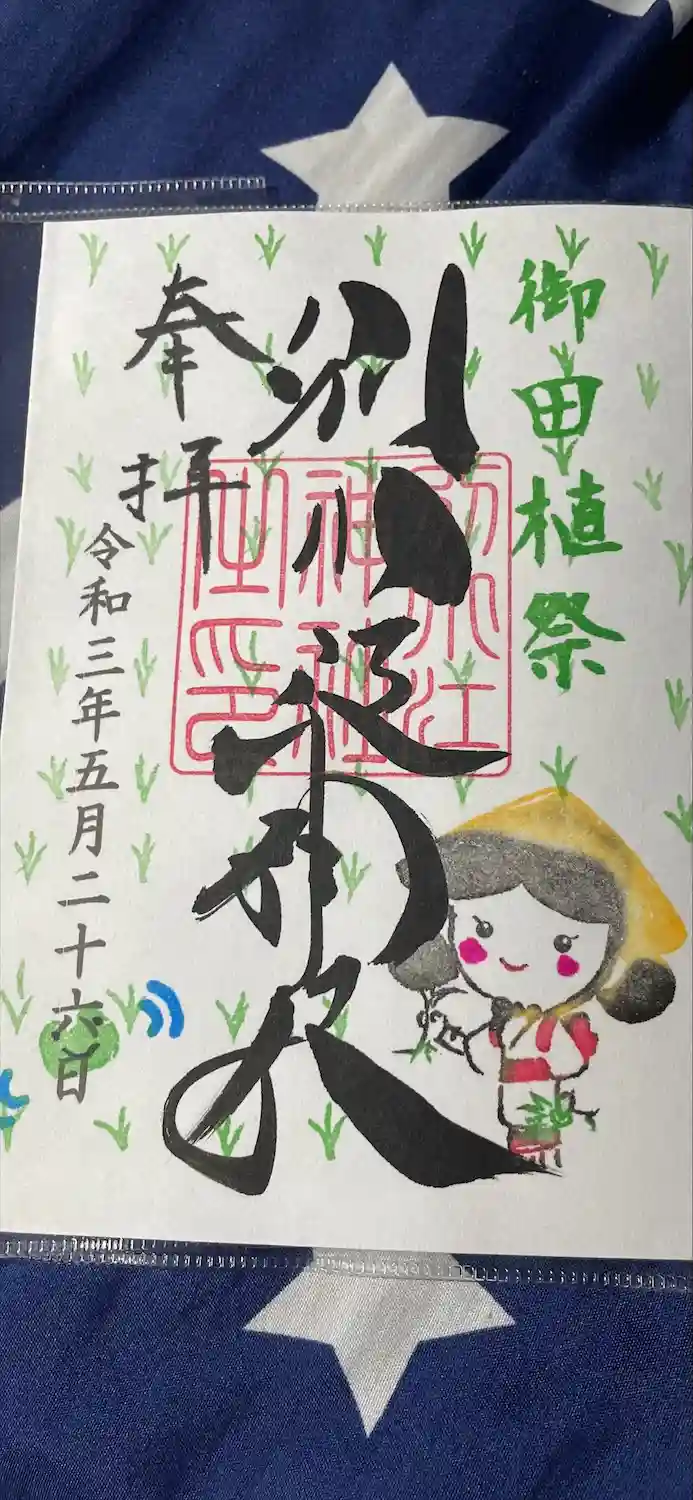 御田植祭
別小江神社
別小江
神社
之印
奉拝
令和三年五月二十六日